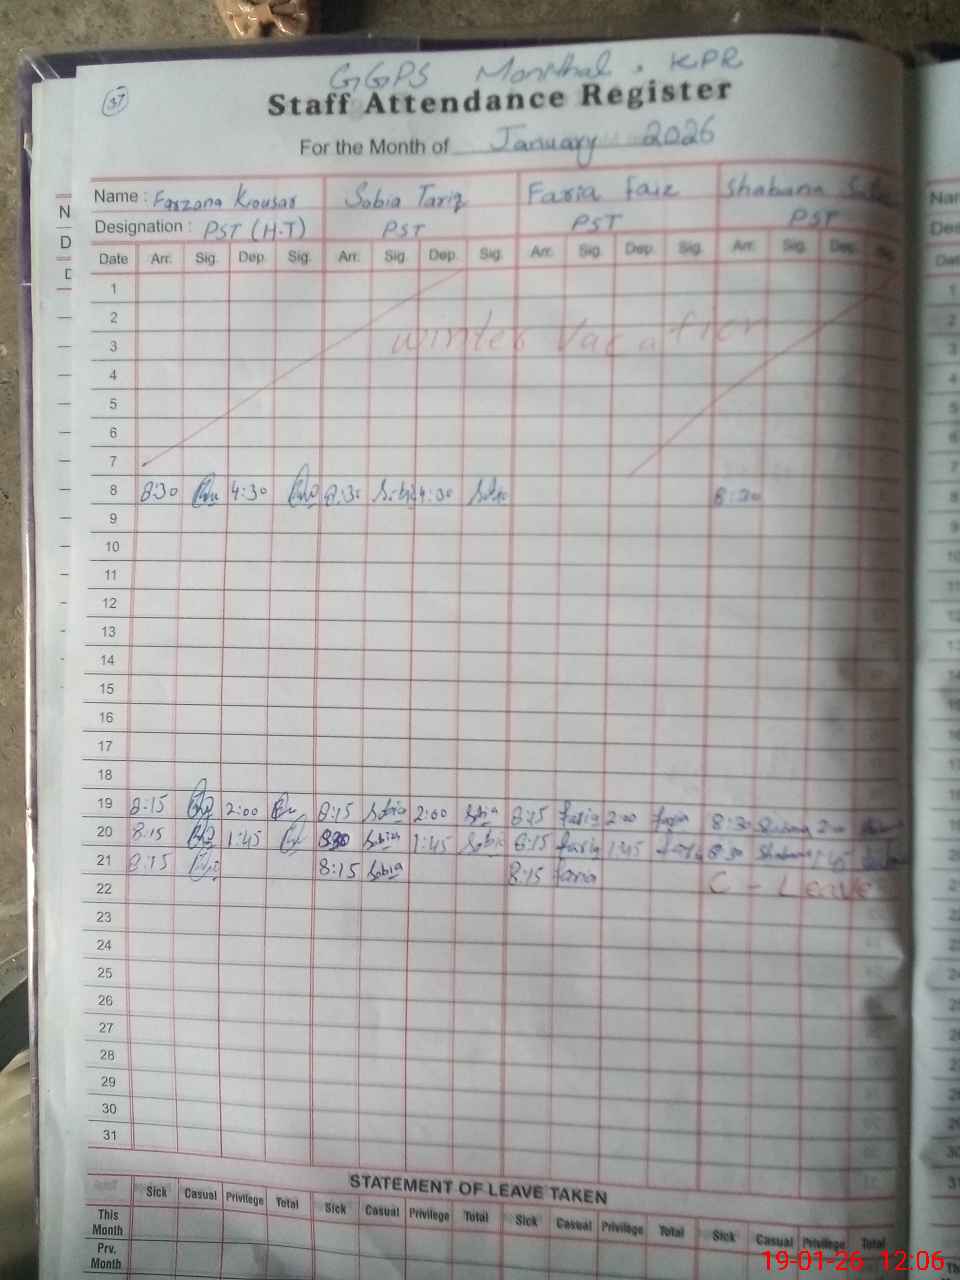 37
GGPS Monthal, KPR
Staff Attendance Register
For the Month of January 2026
Name : Farzana Kousar Sobia Tariq Faria Faiz Shabana
Designation : PST (H.T) PST PST PST
Date Arr. Sig. Dep. Sig. Arr. Sig. Dep. Sig. Arr. Sig. Dep. Sig. Arr. Sig. Dep. Sig.
1
2
winter Vacation
3
4
5
6
7
8 8:30 4:30 8:30 Sobia 4:30 Sobia 8:30
9
10
11
12
13
14
15
16
17
18
19 8:15 2:00 8:15 Sobia 2:00 Sobia 8:15 Faria 2:00 Faria 8:30 Shabana 2:00
20 8:15 1:45 8:30 Sobia 1:45 Sobia 8:15 Faria 1:45 Faria 8:30 Shabana 1:45
21 8:15 8:15 Sobia 8:15 Faria C - Leave
22
23
24
25
26
27
28
29
30
31
STATEMENT OF LEAVE TAKEN
Sick Casual Privilege Total Sick Casual Privilege Total Sick Casual Privilege Total Sick Casual Privilege Total
This Month
Prv. Month
19-01-26 12:06